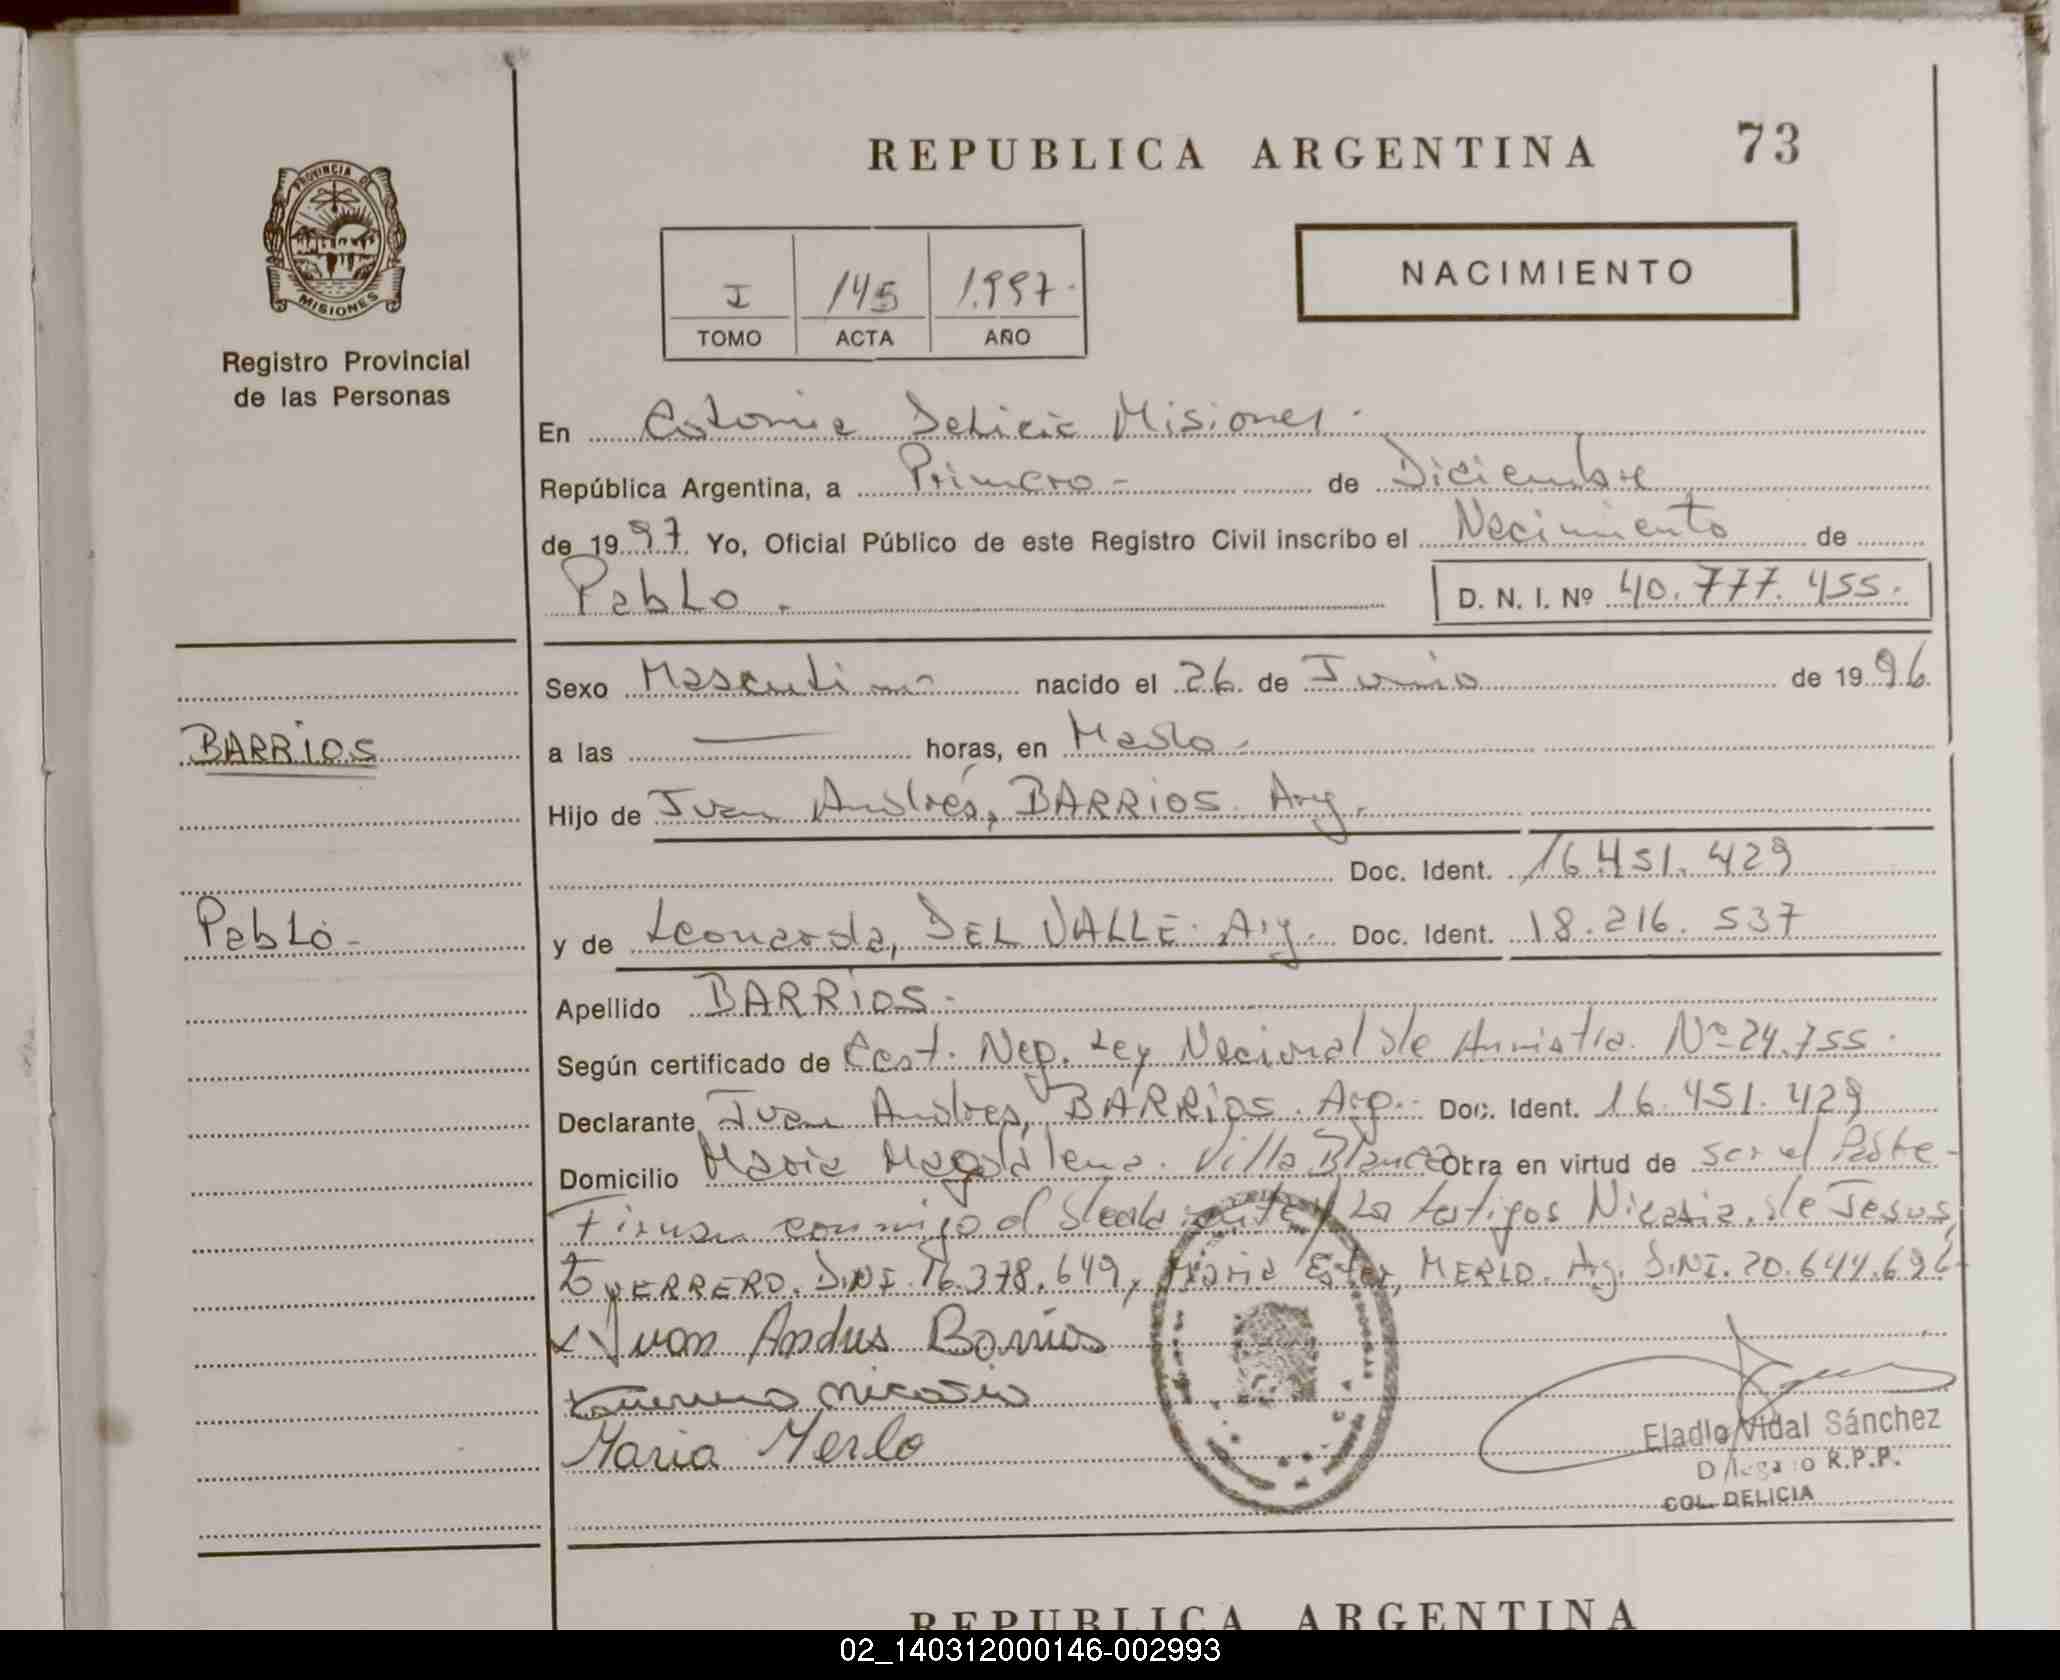 REPUBLICA ARGENTINA 73
PROVINCIA DE
MISIONES
Registro Provincial
de las Personas
I 145 1.997.
TOMO ACTA AÑO
NACIMIENTO
En Colonia Delicia Misiones.
República Argentina, a Primero - de Diciembre
de 1997 Yo, Oficial Público de este Registro Civil inscribo el Nacimiento de
Pablo. D. N. I. Nº 40.777.455.
Sexo Masculino nacido el 26 de Junio de 1996
BARRIOS
a las — horas, en Mado.
Hijo de Juan Andrés, BARRIOS. Arg.
Doc. Ident. 16.451.429
Pablo-
y de Leonarda, DEL VALLE. Arg. Doc. Ident. 18.216.537
Apellido BARRIOS.
Según certificado de Cert. Neg. Ley Nacional de Amnistia. Nº 24.755.
Declarante Juan Andres, BARRIOS. Arg. Doc. Ident. 16.451.429
Domicilio Maria Magdalena. Villa Blanca Obra en virtud de ser el Padre-
Firman conmigo el declarante y los testigos Nicasia de Jesus,
GUERRERO. D.N.I. 16.378.649, Maria Ester, MERLO. Arg. D.N.I. 20.644.696-
x Juan Andres Barrios
Guerrero nicasio
Maria Merlo
Eladio Vidal Sánchez
Delegado R.P.P.
COL. DELICIA
REPUBLICA ARGENTINA
02_140312000146-002993